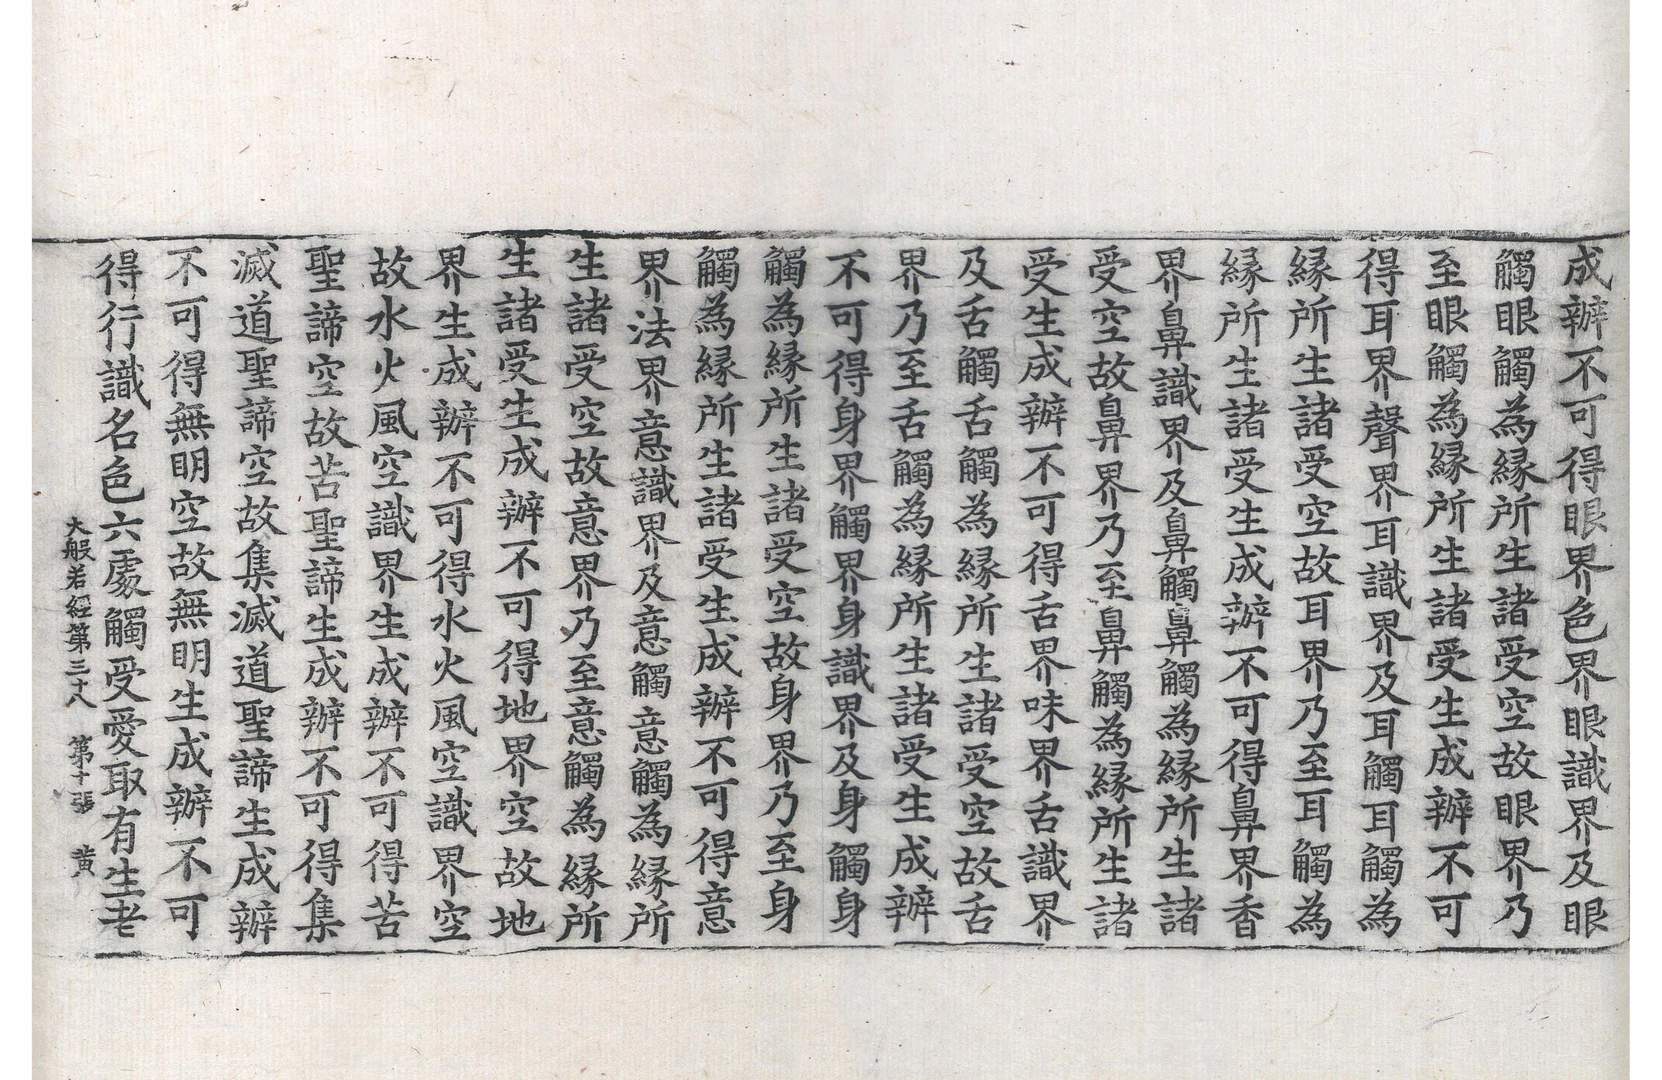 成辦不可得眼界色界眼識界及眼
觸眼觸為緣所生諸受空故眼界乃
至眼觸為緣所生諸受生成辦不可
得耳界聲界耳識界及耳觸耳觸為
緣所生諸受空故耳界乃至耳觸為
緣所生諸受生成辦不可得鼻界香
界鼻識界及鼻觸鼻觸為緣所生諸
受空故鼻界乃至鼻觸為緣所生諸
受生成辦不可得舌界味界舌識界
及舌觸舌觸為緣所生諸受空故舌
界乃至舌觸為緣所生諸受生成辦
不可得身界觸界身識界及身觸身
觸為緣所生諸受空故身界乃至身
觸為緣所生諸受生成辦不可得意
界法界意識界及意觸意觸為緣所
生諸受空故意界乃至意觸為緣所
生諸受生成辦不可得地界空故地
界生成辦不可得水火風空識界空
故水火風空識界生成辦不可得苦
聖諦空故苦聖諦生成辦不可得集
滅道聖諦空故集滅道聖諦生成辦
不可得無明空故無明生成辦不可
得行識名色六處觸受愛取有生老
大般若經第三十八　第十張　黃